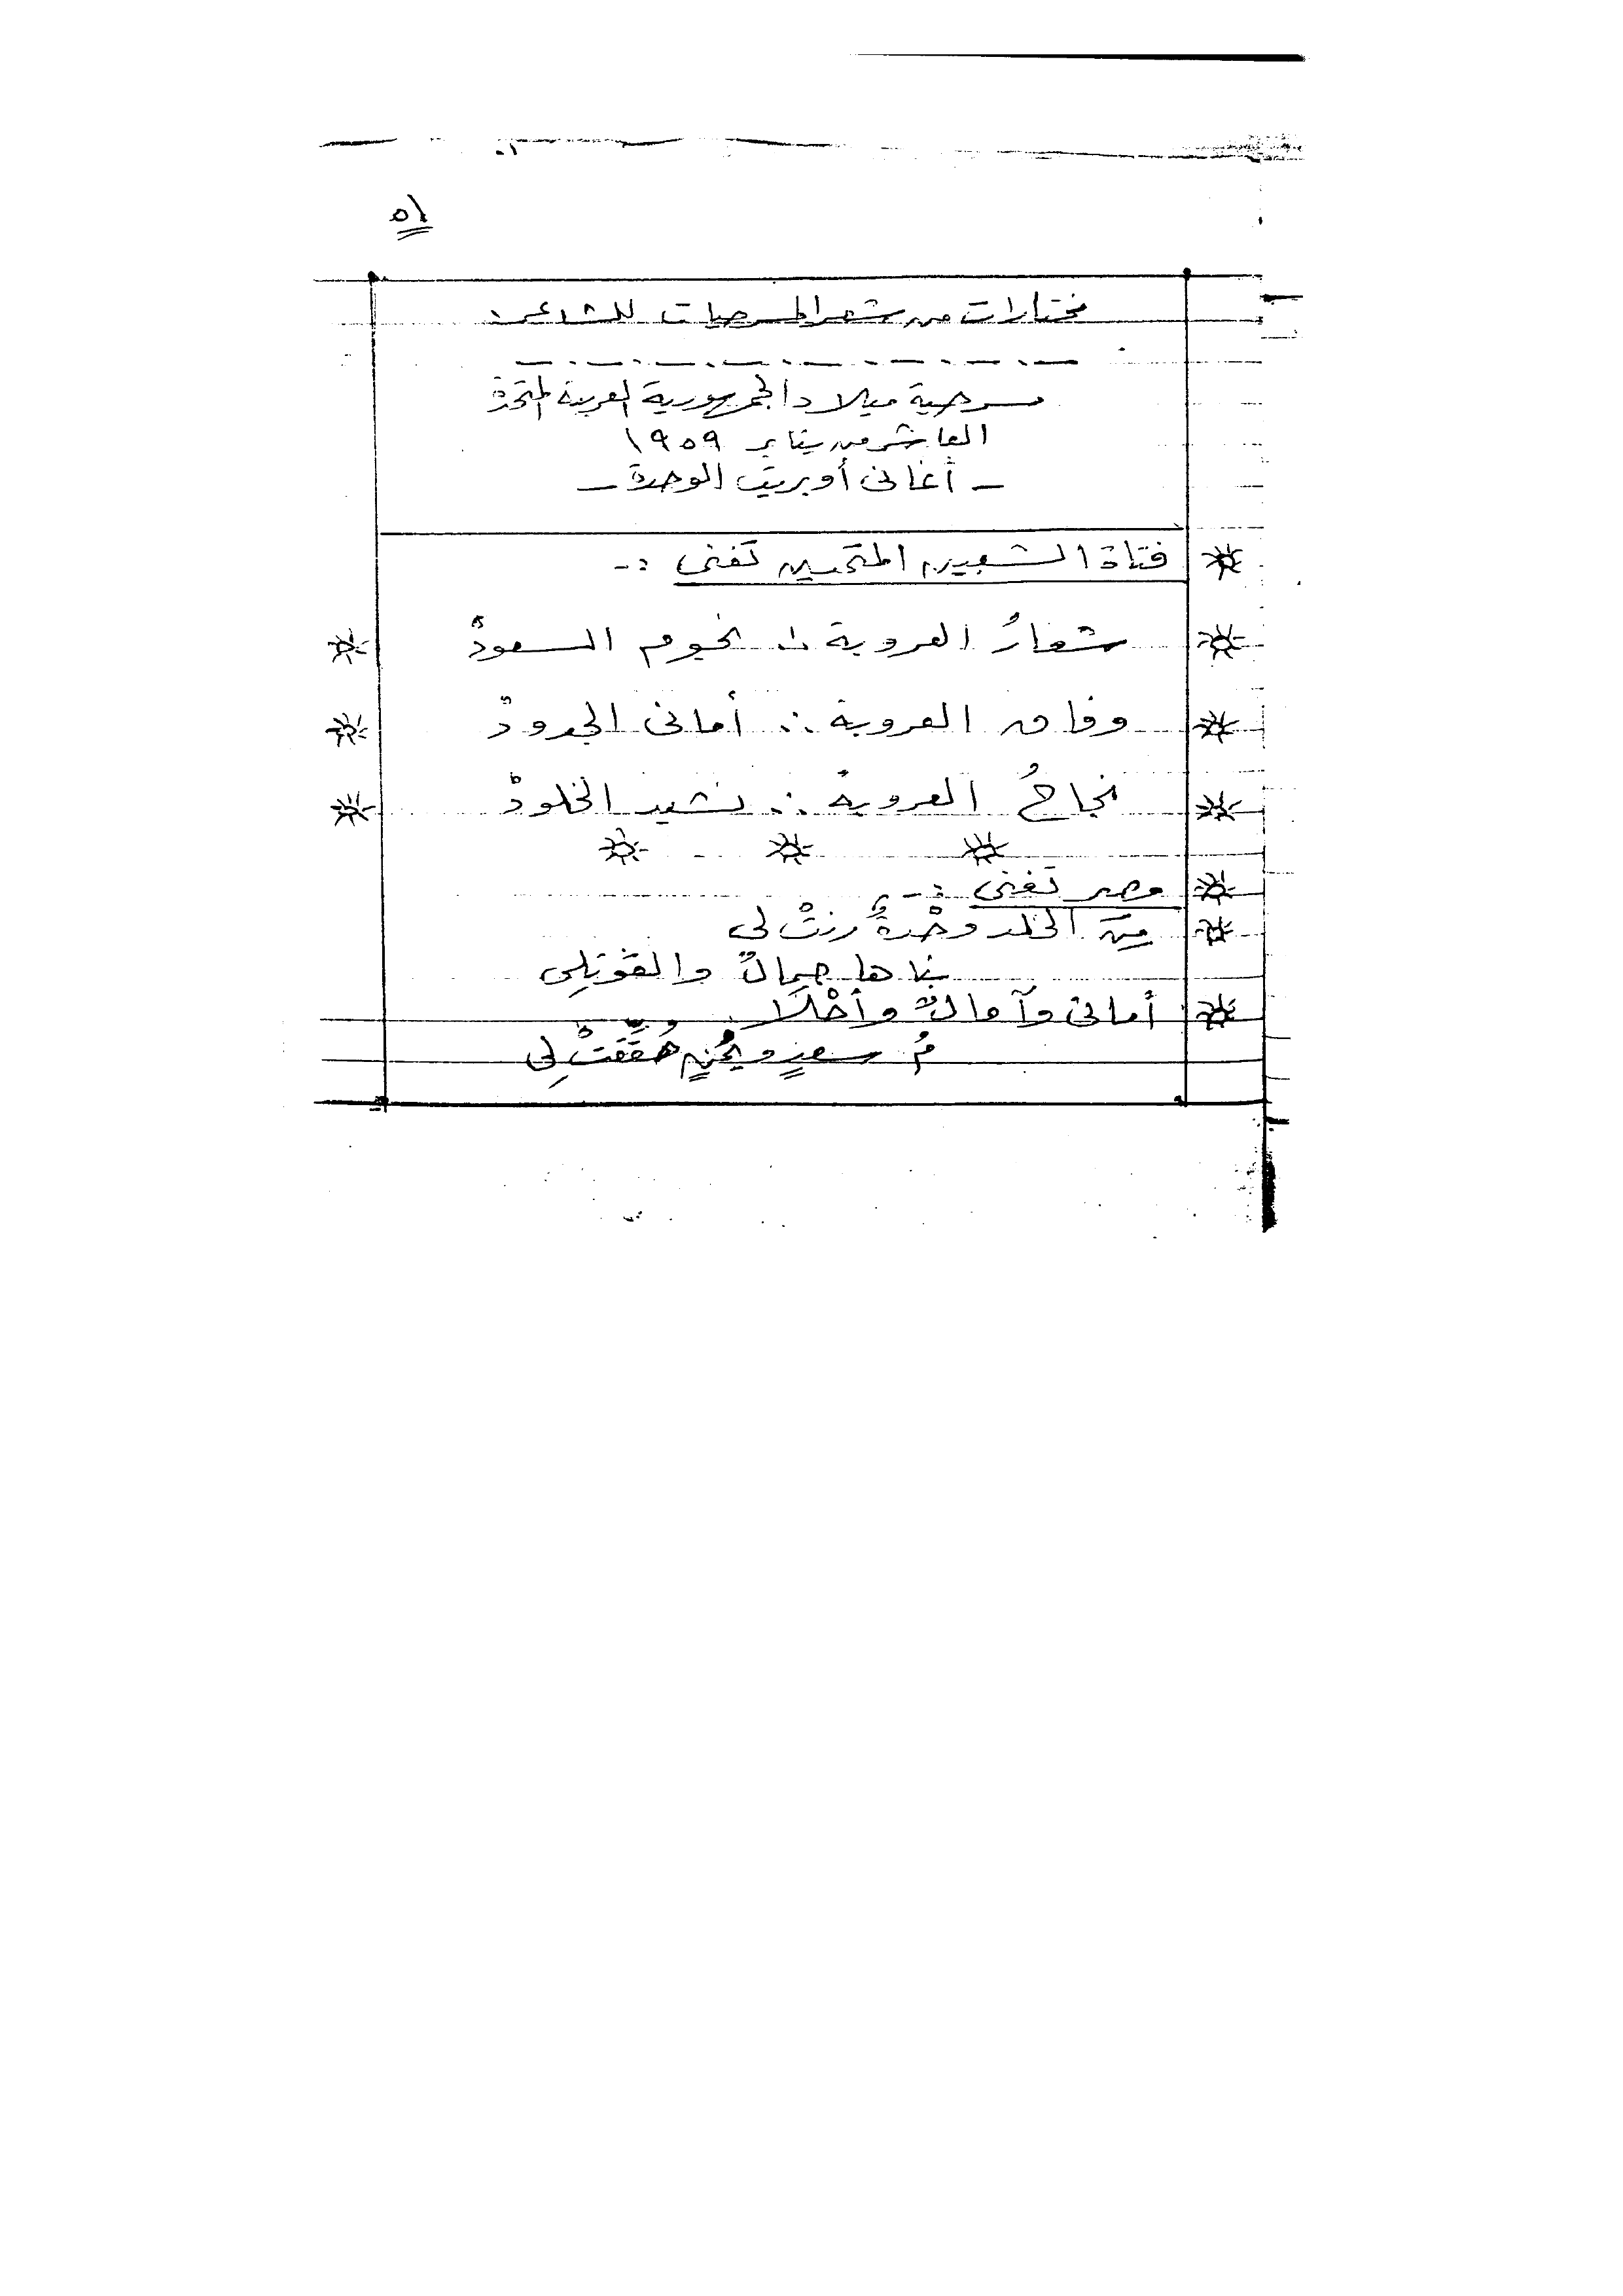 ٥١
مختارات من شعر المسرحيات للشاعر:
مسرحية ميلاد الجمهورية العربية المتحدة
العاشر من يناير ١٩٥٩
- أغانى أوبريت الوحدة -
فتاة الشعبين المتحدين تغنى :-
شعارُ العروبة ∴ نجوم السعودْ
وفاق العروبة ∴ أمانى الجدودْ
نجاحُ العروبة ∴ نشيد الخلودْ
مصر تغنى :-
مِنَ الخلد وحْدةٌ رنتْ لى
بناها جمالٌ والقوتلِى
أمانى وآمالٌ وأحْلَا
مُ سعدٍ ويُمْنٍ حُقِّقَتْ لِى